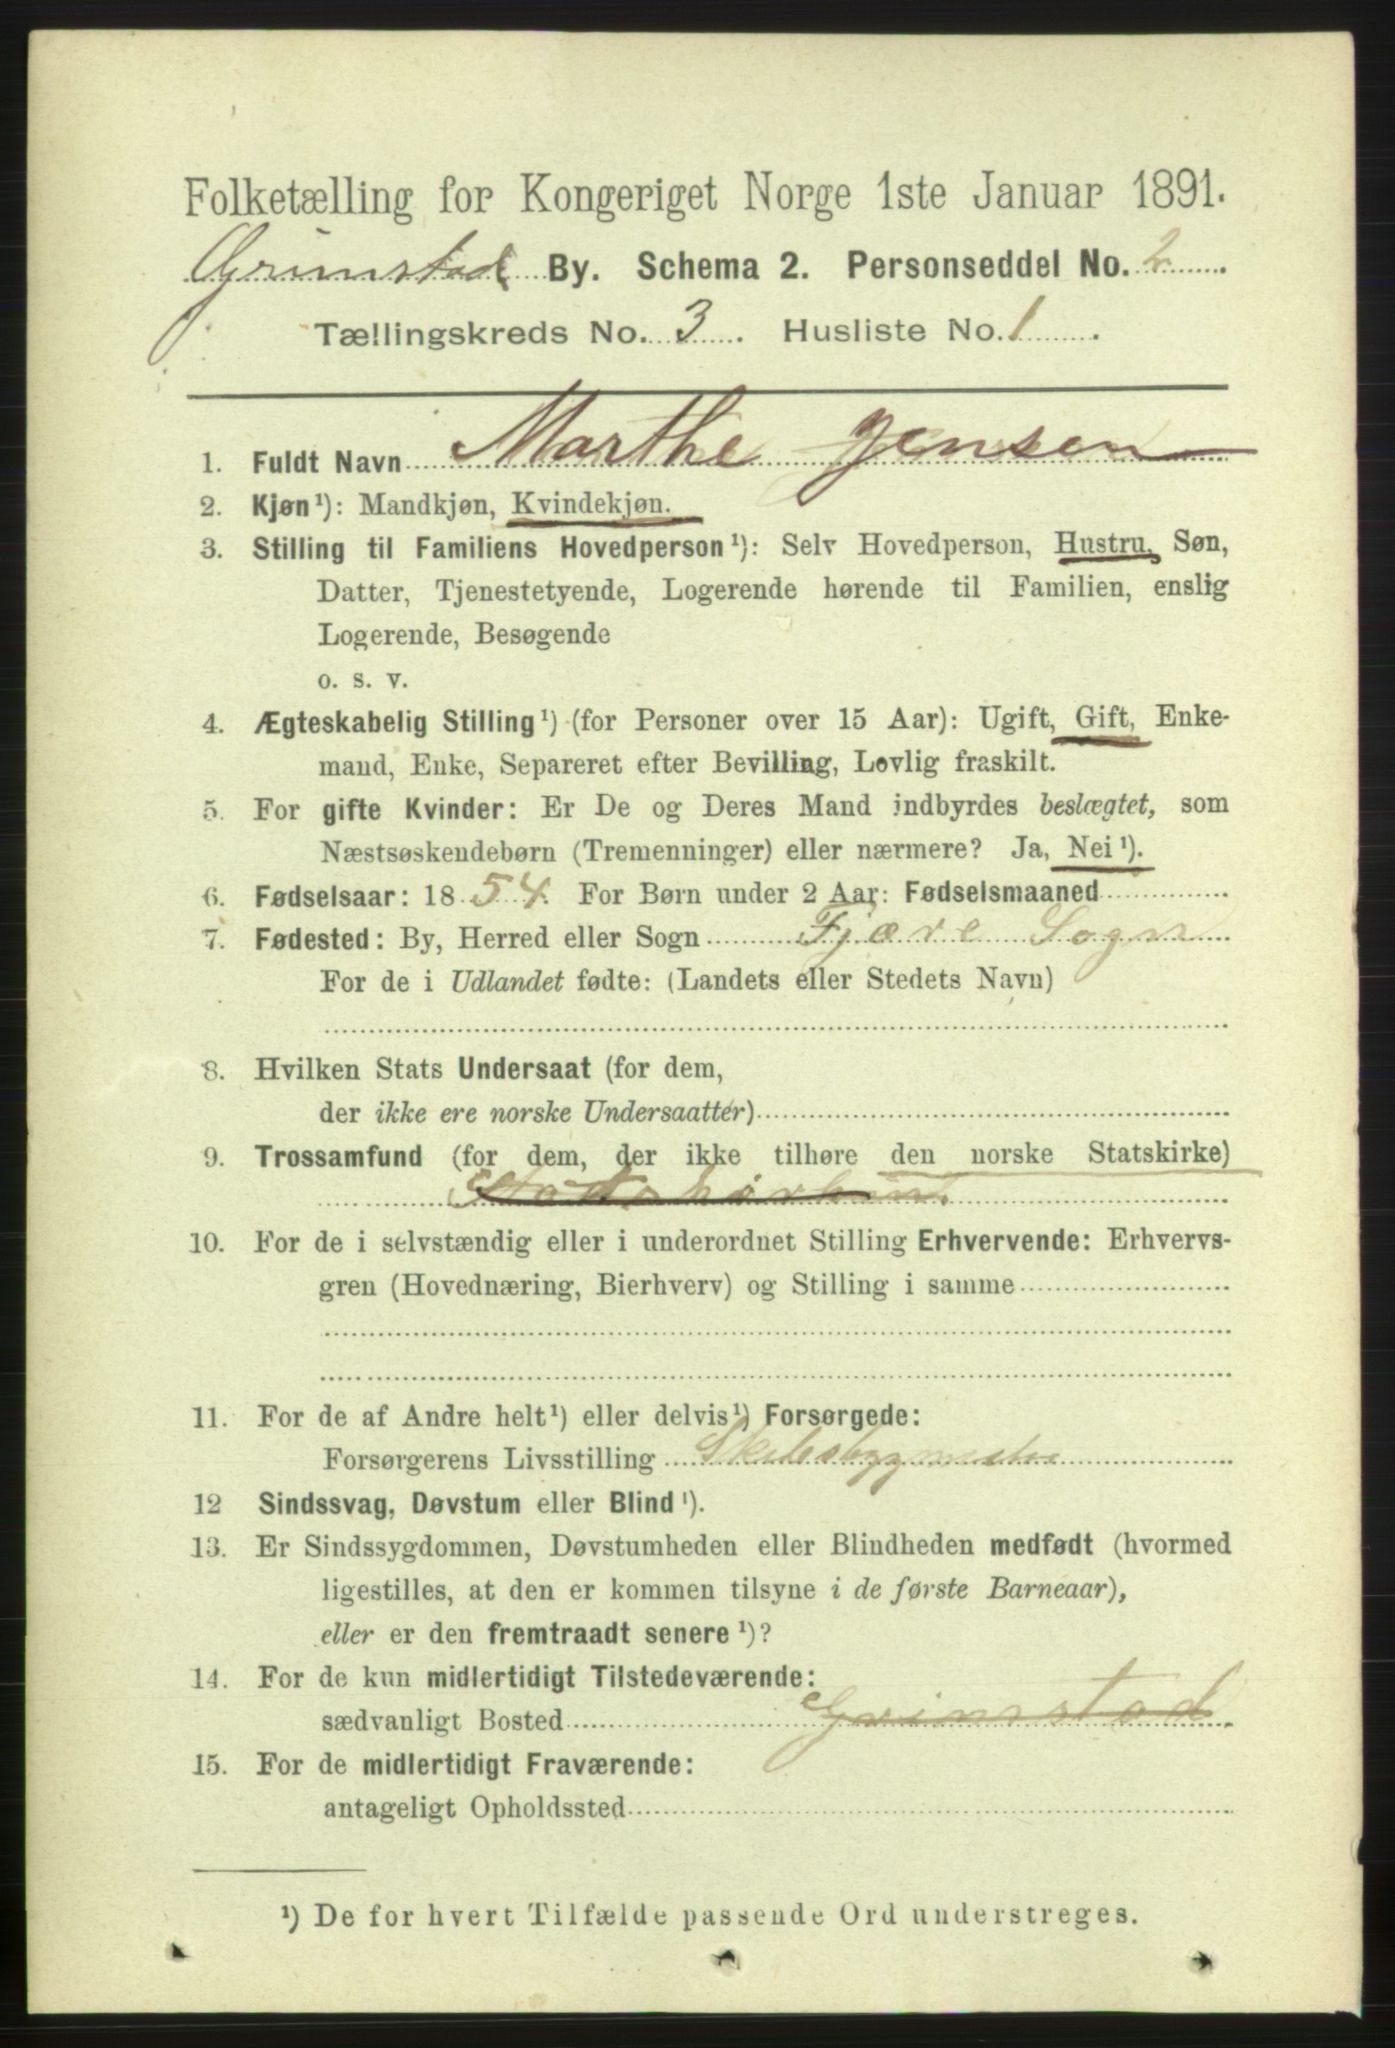 Folketælling for Kongeriget Norge 1ste Januar 1891.
Grimstad By. Schema 2. Personseddel No. 2
Tællingskreds No. 3. Husliste No. 1.
1. Fuldt Navn Marthe Jensen
2. Kjøn¹): Mandkjøn, Kvindekjøn.
3. Stilling til Familiens Hovedperson¹): Selv Hovedperson, Hustru, Søn,
Datter, Tjenestetyende, Logerende hørende til Familien, enslig
Logerende, Besøgende
o. s. v.
4. Ægteskabelig Stilling¹) (for Personer over 15 Aar): Ugift, Gift, Enke-
mand, Enke, Separeret efter Bevilling, Lovlig fraskilt.
5. For gifte Kvinder: Er De og Deres Mand indbyrdes beslægtet, som
Næstsøskendebørn (Tremenninger) eller nærmere? Ja, Nei¹).
6. Fødselsaar: 1854. For Børn under 2 Aar: Fødselsmaaned
7. Fødested: By, Herred eller Sogn Fjære Sogn
For de i Udlandet fødte: (Landets eller Stedets Navn)
8. Hvilken Stats Undersaat (for dem,
der ikke ere norske Undersaatter)
9. Trossamfund (for dem, der ikke tilhøre den norske Statskirke)
10. For de i selvstændig eller i underordnet Stilling Erhvervende: Erhvervs-
gren (Hovednæring, Bierhverv) og Stilling i samme
11. For de af Andre helt¹) eller delvis¹) Forsørgede:
Forsørgerens Livsstilling Skibsbygmester
12 Sindssvag, Døvstum eller Blind¹).
13. Er Sindssygdommen, Døvstumheden eller Blindheden medfødt (hvormed
ligestilles, at den er kommen tilsyne i de første Barneaar),
eller er den fremtraadt senere¹)?
14. For de kun midlertidigt Tilstedeværende:
sædvanligt Bosted Grimstad
15. For de midlertidigt Fraværende:
antageligt Opholdssted
¹) De for hvert Tilfælde passende Ord understreges.